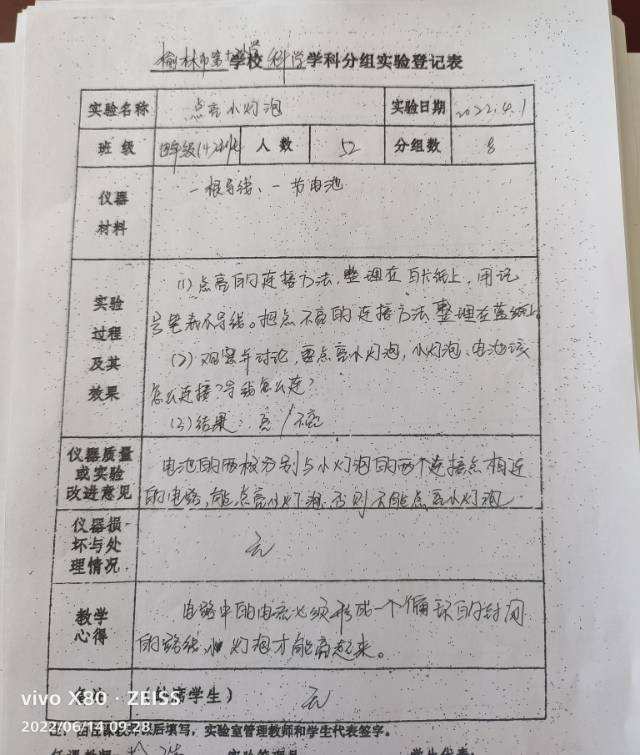 榆林市第十二学校 科学学科分组实验登记表
实验名称 点亮小灯泡 实验日期 2022.4.1
班级 四年级(4) 人数 52 分组数 8
仪器材料 一根导线、一节电池
实验过程及其效果
(1)点亮的连接方法,整理在白纸上,用记
号笔表示导线。把点不亮的连接方法整理在蓝纸上
(2)观察并讨论,要点亮小灯泡,小灯泡、电池该
怎么连接?导线怎么连?
(3)结果:亮/不亮
仪器质量或实验改进意见
电池的两极分别与小灯泡的两个连接点相连
的电路,能点亮小灯泡 否则不能点亮小灯泡.
仪器损坏与处理情况 无
教学心得
电路中的电流必须形成一个循环的封闭
的路线,小灯泡才能亮起来。
备注 (缺席学生) 无
vivo X80 · ZEISS
2022/06/14 09:28
后填写,实验室管理教师和学生代表签字。
实验管理员 学生代表: